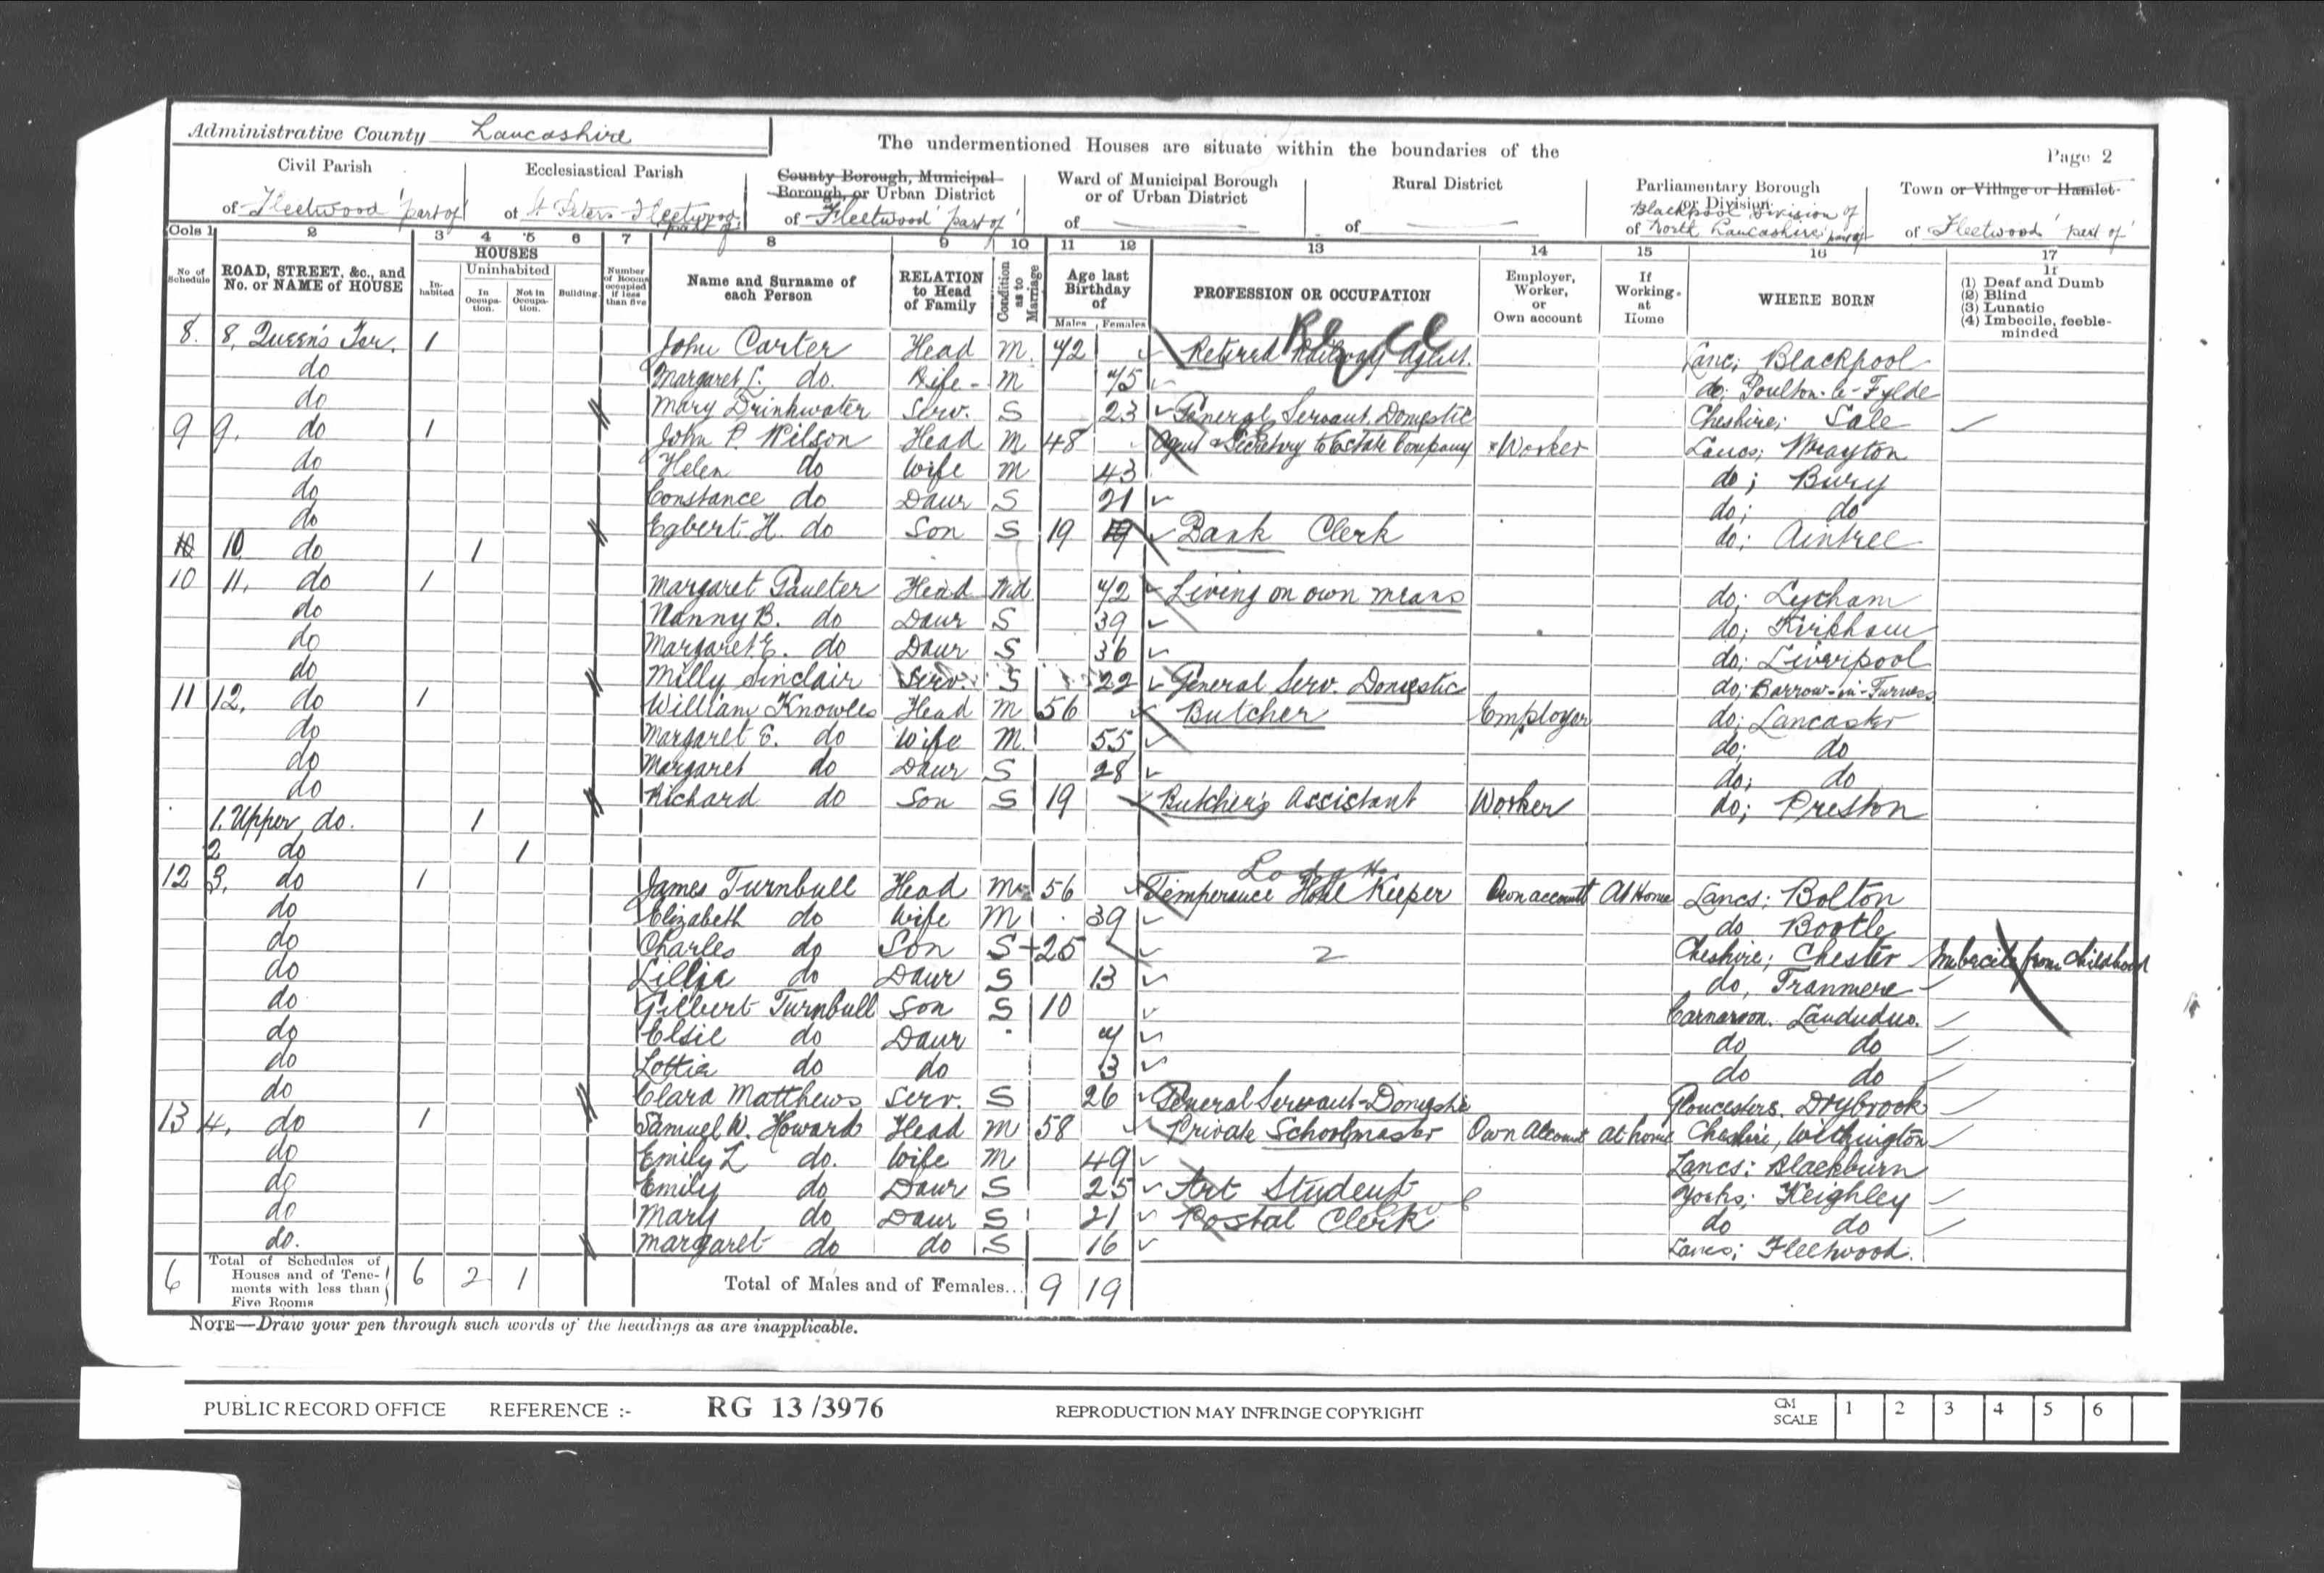 Administrative County Lancashire
The undermentioned Houses are situate within the boundaries of the
Page 2
Civil Parish
of Fleetwood 'part of'
Ecclesiastical Parish
of St Peters Fleetwood part of
County Borough, Municipal Borough, or Urban District
of Fleetwood 'part of'
Ward of Municipal Borough or of Urban District
of
Rural District
of
Parliamentary Borough or Division
of Blackpool Division of North Lancashire part of
Town or Village or Hamlet
of Fleetwood 'part of'
Cols 1 2 3 4 5 6 7 8 9 10 11 12 13 14 15 16 17
No of Schedule
ROAD, STREET, &c., and No. or NAME of HOUSE
HOUSES
Inhabited
Uninhabited
In Occupation.
Not in Occupation.
Building.
Number of Rooms occupied if less than five
Name and Surname of each Person
RELATION to Head of Family
Condition as to Marriage
Age last Birthday of
Males Females
PROFESSION OR OCCUPATION
Employer, Worker, or Own account
If Working at Home
WHERE BORN
If
(1) Deaf and Dumb
(2) Blind
(3) Lunatic
(4) Imbecile, feeble-minded
8. 8, Queen's Ter. 1 John Carter Head M. 72 Retired Railway Agent. Lanc; Blackpool
do Margaret L. do. Wife - M 75 do; Poulton-le-Fylde
do Mary Drinkwater Serv. S 23 General Servant, Domestic Cheshire; Sale
9 9. do 1 John P. Wilson Head M 48 Agent & Secretary to Estate Company Worker Lancs; Wrayton
do Helen do Wife M 43 do; Bury
do Constance do Daur S 21 do; do
do Egbert H. do Son S 19 19 Bank Clerk do; Aintree
10 10 do 1
10 11, do 1 Margaret Gaulter Head Wd 72 Living on own means do; Lytham
do Nanny B. do Daur S 39 do; Kirkham
do Margaret E. do Daur S 36 do; Liverpool
do Milly Sinclair Serv. S 22 General Serv. Domestic do; Barrow-in-Furness
11 12, do 1 William Knowles Head M 56 Butcher Employer do; Lancaster
do Margaret E. do Wife M. 55 do; do
do Margaret do Daur S 28 do; do
do Richard do Son S 19 Butcher's Assistant Worker do; Preston
1. Upper do. 1
2 do 1
12 3. do 1 James Turnbull Head M 56 Temperance Hotel Keeper Own account At Home Lancs: Bolton
do Elizabeth do Wife M 39 do Bootle
do Charles do Son S 25 2 Cheshire; Chester Imbecile from childhood
do Lillia do Daur S 13 do, Tranmere
do Gilbert Turnbull Son S 10 Carnarvon. Llandudno.
do Elsie do Daur 7 do do
do Lottie do do 3 do do
do Clara Matthews Serv. S 26 General Servant-Domestic Gloucesters. Drybrook
13 4, do 1 Samuel W. Howard Head M 58 Private Schoolmaster Own Account at home Cheshire, Withington
do Emily L do. Wife M 49 Lancs: Blackburn
do Emily do Daur S 25 Art Student Yorks; Keighley
do Mary do Daur S 21 Postal Clerk do do
do. Margaret do do S 16 Lancs; Fleetwood.
6 Total of Schedules of Houses and of Tenements with less than Five Rooms 6 2 1 Total of Males and of Females... 9 19
NOTE—Draw your pen through such words of the headings as are inapplicable.
PUBLIC RECORD OFFICE REFERENCE :- RG 13 /3976 REPRODUCTION MAY INFRINGE COPYRIGHT CM SCALE 1 2 3 4 5 6